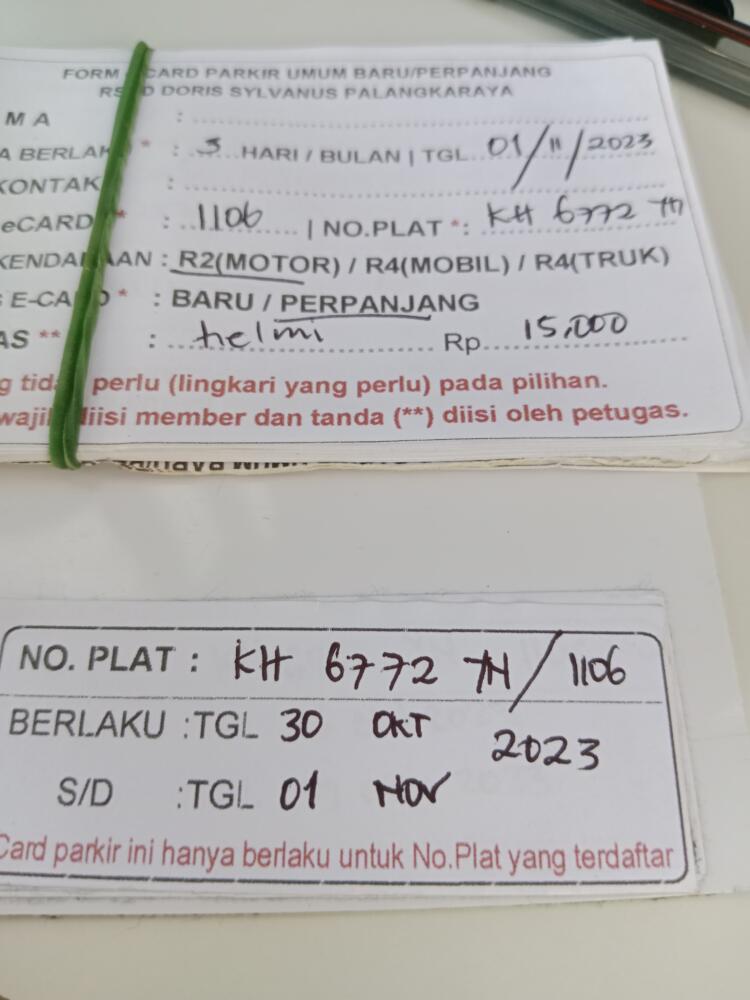 FORM CARD PARKIR UMUM BARU/PERPANJANG
RS D DORIS SYLVANUS PALANGKARAYA
MA : 
A BERLAK * : 3 HARI / BULAN | TGL 01/11/2023
KONTAK :
eCARD * : 1106 | NO.PLAT *: KH 6772 TH
KENDA AAN : R2(MOTOR) / R4(MOBIL) / R4(TRUK)
E-CA D * : BARU / PERPANJANG
AS ** : helmi Rp 15,000
g tida perlu (lingkari yang perlu) pada pilihan.
wajib diisi member dan tanda (**) diisi oleh petugas.
NO. PLAT : KH 6772 TH / 1106
BERLAKU : TGL 30 OKT 2023
S/D : TGL 01 NOV
Card parkir ini hanya berlaku untuk No.Plat yang terdaftar